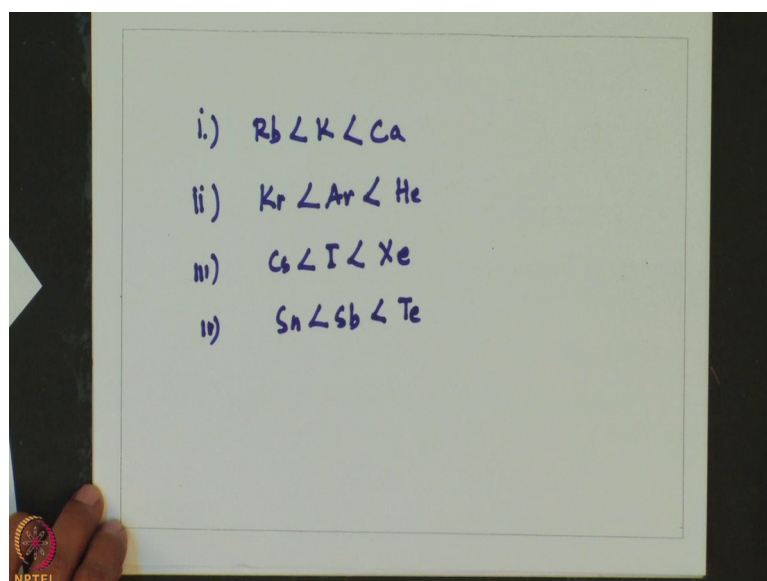 i.) Rb < K < Ca
ii) Kr < Ar < He
iii) Cs < I < Xe
iv) Sn < Sb < Te
NPTEL